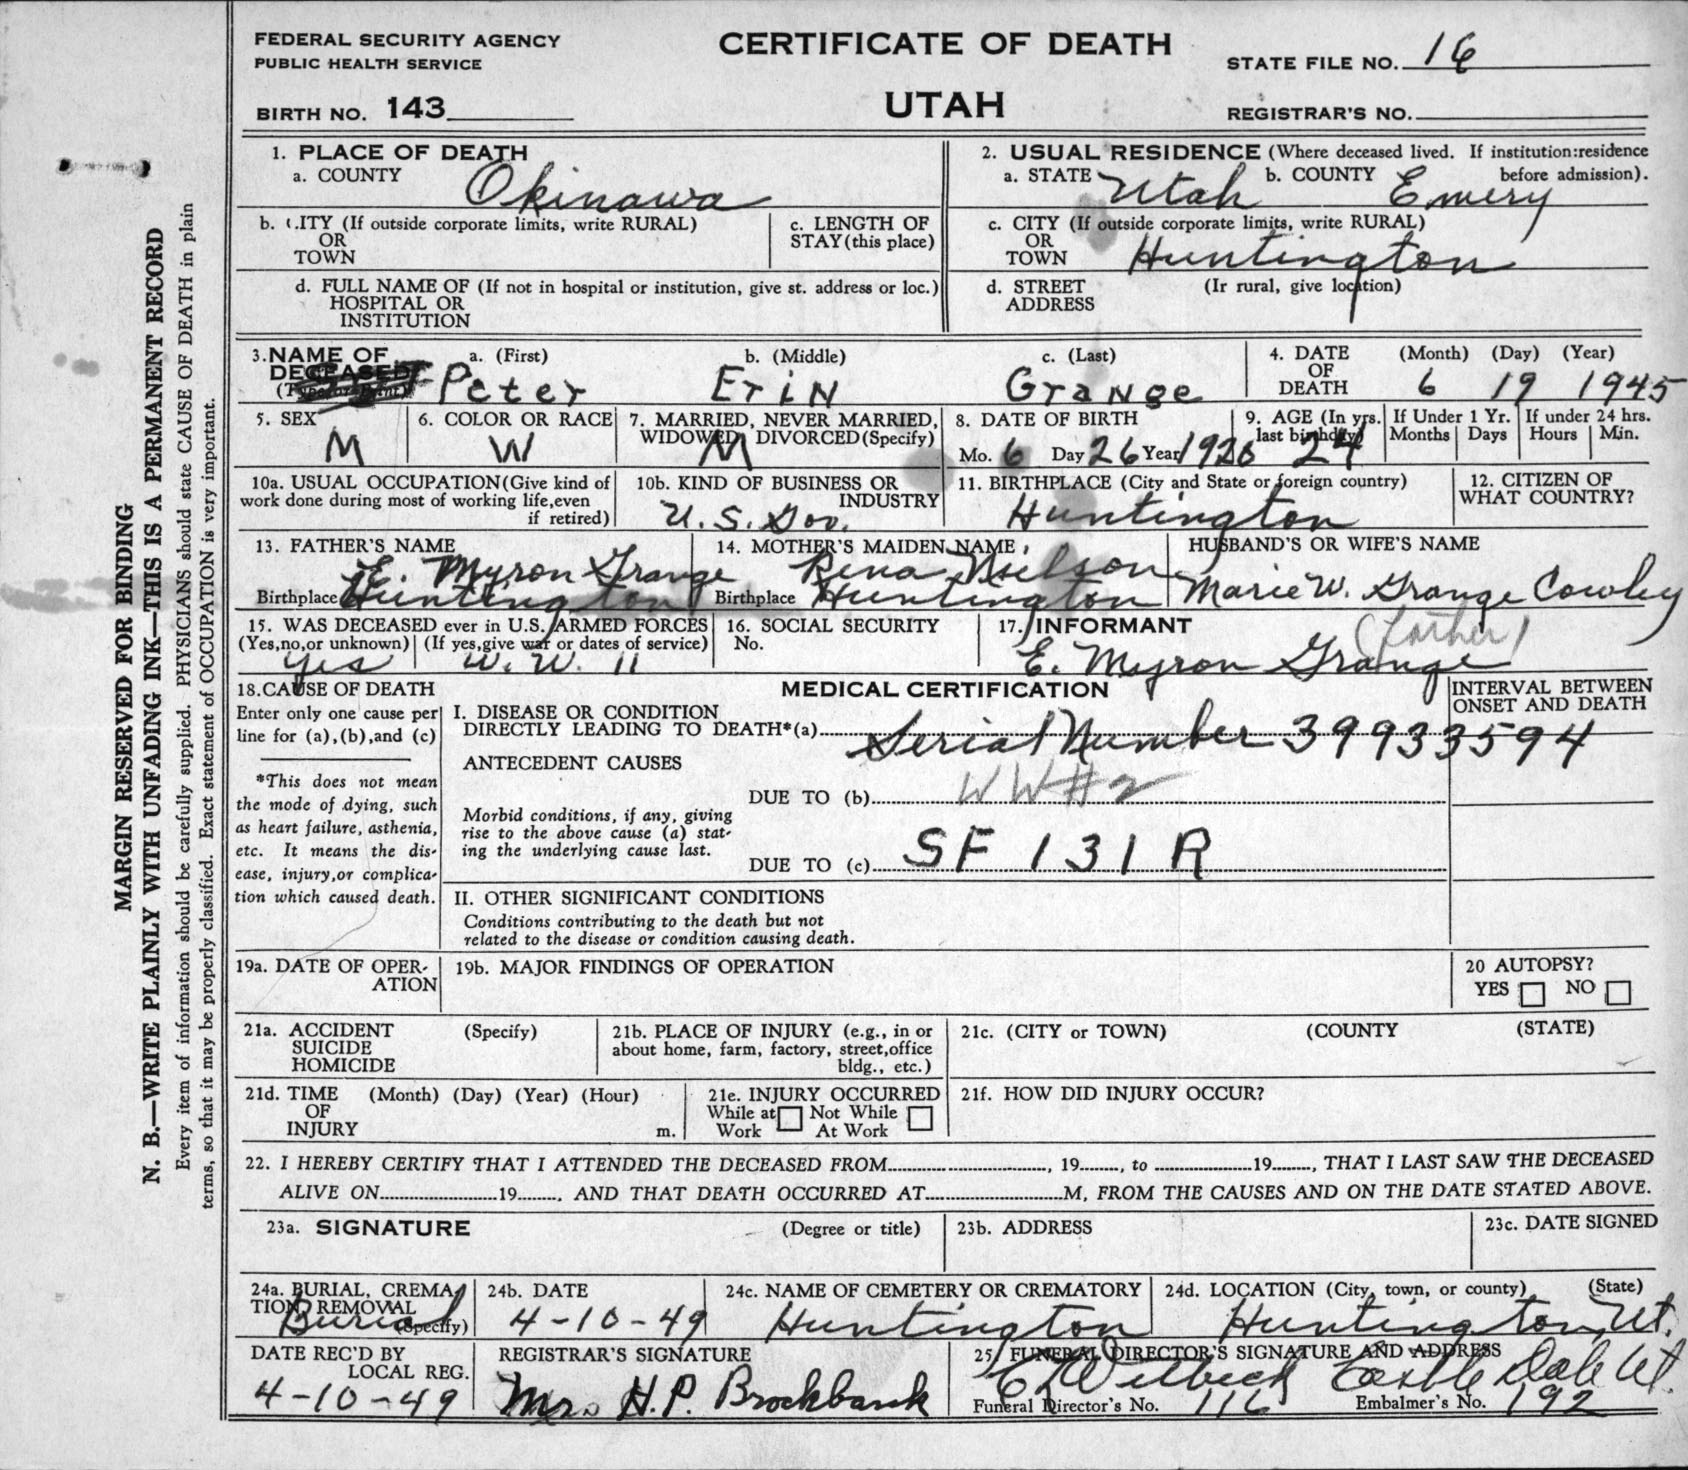 FEDERAL SECURITY AGENCY
PUBLIC HEALTH SERVICE
BIRTH NO. 143
CERTIFICATE OF DEATH
UTAH
STATE FILE NO. 16
REGISTRAR'S NO.
MARGIN RESERVED FOR BINDING
N. B.—WRITE PLAINLY WITH UNFADING INK—THIS IS A PERMANENT RECORD
Every item of information should be carefully supplied. PHYSICIANS should state CAUSE OF DEATH in plain
terms, so that it may be properly classified. Exact statement of OCCUPATION is very important.
1. PLACE OF DEATH
a. COUNTY Okinawa
2. USUAL RESIDENCE (Where deceased lived. If institution:residence
before admission).
a. STATE Utah b. COUNTY Emery
b. CITY (If outside corporate limits, write RURAL)
OR
TOWN
c. LENGTH OF
STAY (this place)
c. CITY (If outside corporate limits, write RURAL)
OR
TOWN Huntington
d. FULL NAME OF (If not in hospital or institution, give st. address or loc.)
HOSPITAL OR
INSTITUTION
d. STREET (Ir rural, give location)
ADDRESS
3. NAME OF
DECEASED
(Type or Print)
a. (First) Peter
b. (Middle) Erin
c. (Last) Grange
4. DATE
OF
DEATH
(Month) (Day) (Year)
6 19 1945
5. SEX
M
6. COLOR OR RACE
W
7. MARRIED, NEVER MARRIED,
WIDOWED, DIVORCED (Specify)
M
8. DATE OF BIRTH
Mo. 6 Day 26 Year 1920
9. AGE (In yrs.
last birthday)
24
If Under 1 Yr.
Months Days
If under 24 hrs.
Hours Min.
10a. USUAL OCCUPATION (Give kind of
work done during most of working life,even
if retired)
10b. KIND OF BUSINESS OR
INDUSTRY
U.S. Gov.
11. BIRTHPLACE (City and State or foreign country)
Huntington
12. CITIZEN OF
WHAT COUNTRY?
13. FATHER'S NAME
E. Myron Grange
Birthplace Huntington
14. MOTHER'S MAIDEN NAME
Rena Nielson
Birthplace Huntington
HUSBAND'S OR WIFE'S NAME
Marie W. Grange Cowley
15. WAS DECEASED ever in U.S. ARMED FORCES
(Yes,no,or unknown) (If yes,give war or dates of service)
Yes W. W. 11
16. SOCIAL SECURITY
No.
17. INFORMANT (Father)
E. Myron Grange
18. CAUSE OF DEATH
Enter only one cause per
line for (a),(b),and (c)
*This does not mean
the mode of dying, such
as heart failure, asthenia,
etc. It means the dis-
ease, injury,or complica-
tion which caused death.
MEDICAL CERTIFICATION
INTERVAL BETWEEN
ONSET AND DEATH
I. DISEASE OR CONDITION
DIRECTLY LEADING TO DEATH*(a) Serial Number 39933594
ANTECEDENT CAUSES
DUE TO (b) WW#2
Morbid conditions, if any, giving
rise to the above cause (a) stat-
ing the underlying cause last.
DUE TO (c) SF 131 R
II. OTHER SIGNIFICANT CONDITIONS
Conditions contributing to the death but not
related to the disease or condition causing death.
19a. DATE OF OPER-
ATION
19b. MAJOR FINDINGS OF OPERATION
20 AUTOPSY?
YES NO
21a. ACCIDENT (Specify)
SUICIDE
HOMICIDE
21b. PLACE OF INJURY (e.g., in or
about home, farm, factory, street,office
bldg., etc.)
21c. (CITY or TOWN) (COUNTY (STATE)
21d. TIME (Month) (Day) (Year) (Hour)
OF
INJURY m.
21e. INJURY OCCURRED
While at Not While
Work At Work
21f. HOW DID INJURY OCCUR?
22. I HEREBY CERTIFY THAT I ATTENDED THE DECEASED FROM, 19, to 19, THAT I LAST SAW THE DECEASED
ALIVE ON 19, AND THAT DEATH OCCURRED AT M, FROM THE CAUSES AND ON THE DATE STATED ABOVE.
23a. SIGNATURE (Degree or title)
23b. ADDRESS
23c. DATE SIGNED
24a. BURIAL, CREMA
TION, REMOVAL
(Specify)
Burial
24b. DATE
4-10-49
24c. NAME OF CEMETERY OR CREMATORY
Huntington
24d. LOCATION (City, town, or county) (State)
Huntington, Ut.
DATE REC'D BY
LOCAL REG.
4-10-49
REGISTRAR'S SIGNATURE
Mrs. H.P. Brockbank
25. FUNERAL DIRECTOR'S SIGNATURE AND ADDRESS
Castle Dale Ut.
Funeral Director's No. 116 Embalmer's No. 192